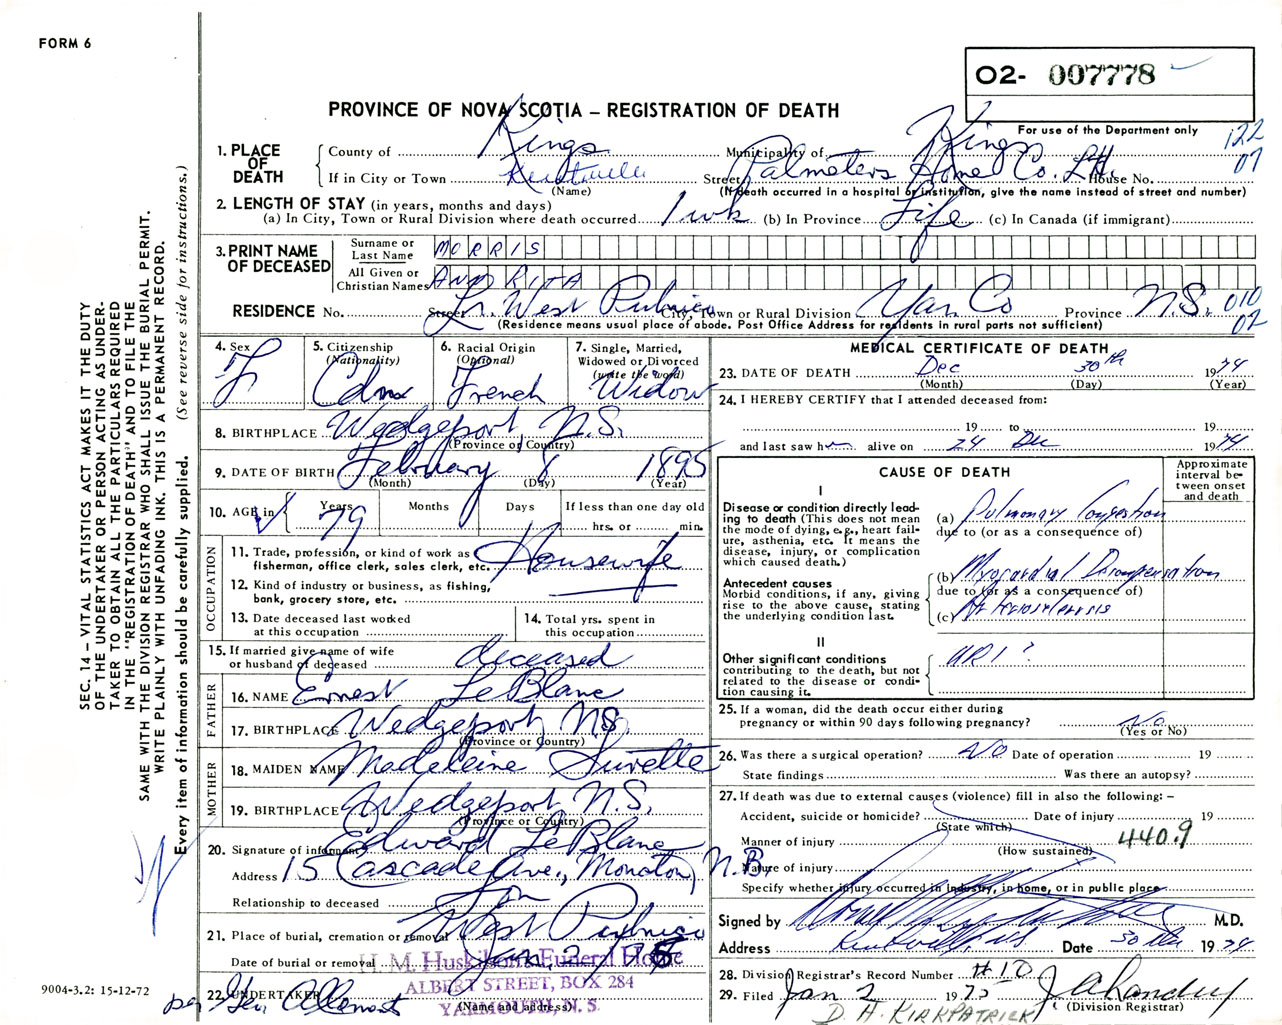 FORM 6
O2- 007778
PROVINCE OF NOVA SCOTIA – REGISTRATION OF DEATH
For use of the Department only
122
07
1. PLACE OF DEATH
County of Kings Municipality of Kings
If in City or Town Kentville Street Palmeters Home Co. Ltd. House No.
(Name) (If death occurred in a hospital or institution, give the name instead of street and number)
2. LENGTH OF STAY (in years, months and days)
(a) In City, Town or Rural Division where death occurred 1 wk (b) In Province Life (c) In Canada (if immigrant)
3. PRINT NAME OF DECEASED
Surname or Last Name MORRIS
All Given or Christian Names ANN RITA
RESIDENCE No. Street Lr. West Pubnico City, Town or Rural Division Yar. Co Province N.S. 010
02
(Residence means usual place of abode. Post Office Address for residents in rural parts not sufficient)
4. Sex F
5. Citizenship (Nationality) Cdn
6. Racial Origin (Optional) French
7. Single, Married, Widowed or Divorced (write the word) Widow
8. BIRTHPLACE Wedgeport, N.S.
(Province or Country)
9. DATE OF BIRTH February 8 1895
(Month) (Day) (Year)
10. AGE in Years 79 Months Days If less than one day old
hrs. or min.
OCCUPATION
11. Trade, profession, or kind of work as
fisherman, office clerk, sales clerk, etc. Housewife
12. Kind of industry or business, as fishing,
bank, grocery store, etc.
13. Date deceased last worked
at this occupation
14. Total yrs. spent in
this occupation
15. If married give name of wife
or husband of deceased deceased
FATHER
16. NAME Ernest LeBlanc
17. BIRTHPLACE Wedgeport, N.S.
(Province or Country)
MOTHER
18. MAIDEN NAME Madeleine Surette
19. BIRTHPLACE Wedgeport N.S.
(Province or Country)
20. Signature of informant Edward LeBlanc
Address 15 Cascade Ave., Moncton, N.B.
Relationship to deceased Son
21. Place of burial, cremation or removal West Pubnico
Date of burial or removal Jan. 2/75
H. M. Huskilson's Funeral Home
ALBERT STREET, BOX 284
YARMOUTH, N. S.
22. UNDERTAKER
(Name and address)
per Geo.
MEDICAL CERTIFICATE OF DEATH
23. DATE OF DEATH Dec 30th 1974
(Month) (Day) (Year)
24. I HEREBY CERTIFY that I attended deceased from:
19 to 19
and last saw h alive on 24 Dec 1974
CAUSE OF DEATH
Approximate interval between onset and death
I
Disease or condition directly leading to death (This does not mean the mode of dying, e.g., heart failure, asthenia, etc. It means the disease, injury, or complication which caused death.)
(a) Pulmonary Congestion
due to (or as a consequence of)
Antecedent causes
Morbid conditions, if any, giving rise to the above cause, stating the underlying condition last.
(b) Myocardial Decompensation
due to (or as a consequence of)
(c) Arteriosclerosis
II
Other significant conditions
contributing to the death, but not related to the disease or condition causing it.
URI?
25. If a woman, did the death occur either during
pregnancy or within 90 days following pregnancy? No
(Yes or No)
26. Was there a surgical operation? No Date of operation 19
State findings Was there an autopsy?
27. If death was due to external causes (violence) fill in also the following: –
Accident, suicide or homicide? Date of injury 19
(State which)
Manner of injury 440.9
(How sustained)
Nature of injury
Specify whether injury occurred in industry, in home, or in public place
Signed by M.D.
Address Kentville, NS Date 30 Dec 1974
28. Division Registrar's Record Number #10
29. Filed Jan 2 1975
(Division Registrar)
D. H. KIRKPATRICK
SEC. 14 – VITAL STATISTICS ACT MAKES IT THE DUTY
OF THE UNDERTAKER OR PERSON ACTING AS UNDER-
TAKER TO OBTAIN ALL THE PARTICULARS REQUIRED
IN THE "REGISTRATION OF DEATH" AND TO FILE THE
SAME WITH THE DIVISION REGISTRAR WHO SHALL ISSUE THE BURIAL PERMIT.
WRITE PLAINLY WITH UNFADING INK. THIS IS A PERMANENT RECORD.
Every item of information should be carefully supplied. (See reverse side for instructions.)
9004-3.2: 15-12-72